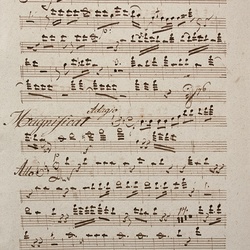 Adagio
Magnificat
Allo